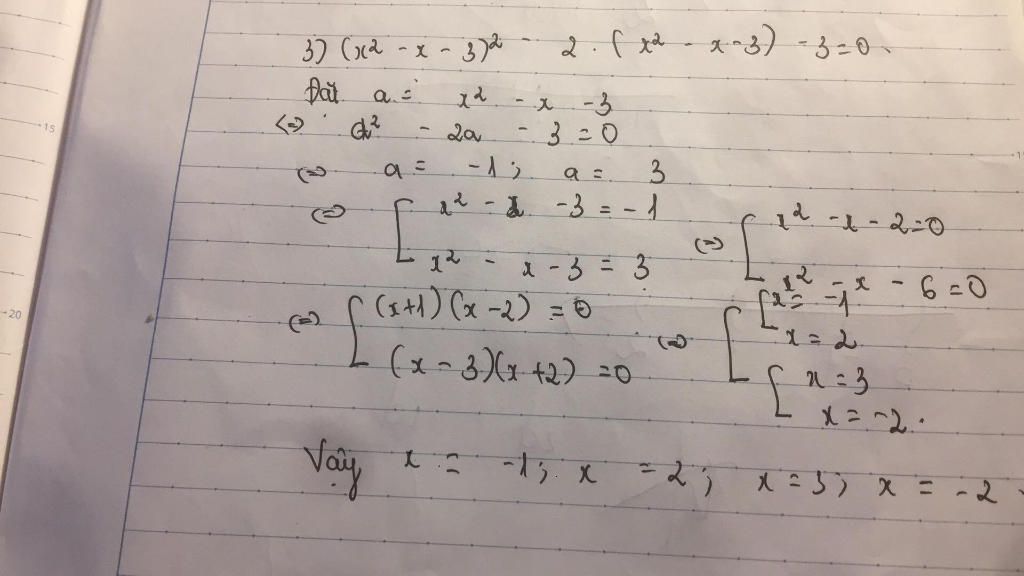 3) (x² - x - 3)² - 2 . (x² - x - 3) - 3 = 0
Đặt a = x² - x - 3
<=> a² - 2a - 3 = 0
<=> a = -1 ; a = 3
<=> [ x² - x - 3 = -1 <=> [ x² - x - 2 = 0
x² - x - 3 = 3 x² - x - 6 = 0
<=> [ (x+1) (x - 2) = 0 <=> [ [ x = -1
x = 2
(x - 3)(x + 2) = 0 [ x = 3
x = -2 .
Vậy x = -1 ; x = 2 ; x = 3 ; x = -2
15
20